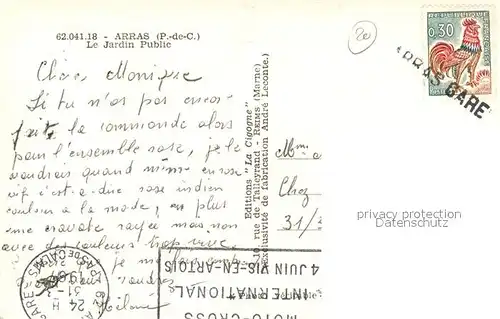 62.041.18 - ARRAS (P.-de-C.)
Le Jardin Public
Chère Monique
Si tu n'as pas encor
fait la commande alors
pour l'ensemble rose, je le
voudrais quand même en rose
vif c'est-à-dire rose indien
couleur à la mode, en plus
une cravate rayée mais non
avec des couleurs trop vive
je
Editions "La Cigogne"
rue de Talleyrand - REIMS (Marne)
exclusivité de fabrication André Leconte.
20
0,30
ARRAS GARE
Mme
Chez
31/
privacy protection
Datenschutz
ARRAS GARE
PAS DE CALAIS
24 H
31-3
1967
MOTO-CROSS
INTERNATIONAL
4 JUIN VIS-EN-ARTOIS